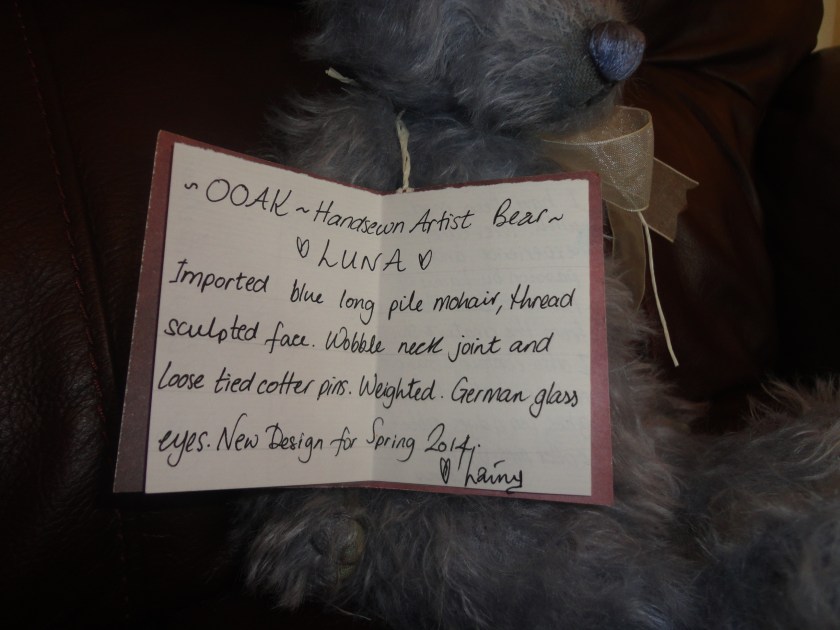 ~ OOAK ~ Handsewn Artist Bear ~
♡ LUNA ♡
Imported blue long pile mohair, thread
sculpted face. Wobble neck joint and
Loose tied cotter pins. Weighted. German glass
eyes. New Design for Spring 2014.
♡ Lainy